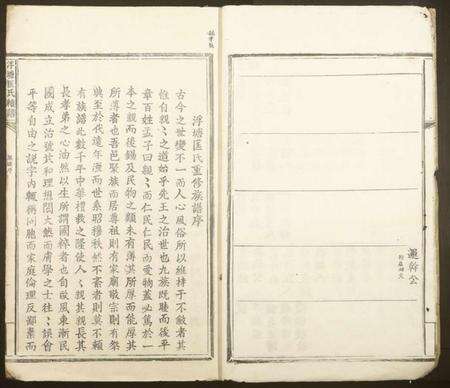 運幹公
浮塘匡氏重修族譜序
古今之世變不一而人心風俗所以維持于不敝者其
惟自親〻之道始乎先王之治世也九族既睦而後平
章百姓孟子曰親〻而仁民仁民而愛物蓋必篤於一
本之親而後錫及民物之類未有薄其所厚而能厚其
所薄者也吾邑聚族而居尊祖則有家廟敬宗則有祭
典至於代遠年湮而世系昭穆秩然不紊者則莫不賴
有族譜此數千年中禮教之隆使人〻親其親長其
長孝弟之心油然以生所謂國粹者也自歐風東漸民
國成立治號共和理想闊大然而膚學之士往〻誤會
平等自由之說宇內輒稱同胞而家庭倫理反鄙棄而
浮塘匡氏族譜